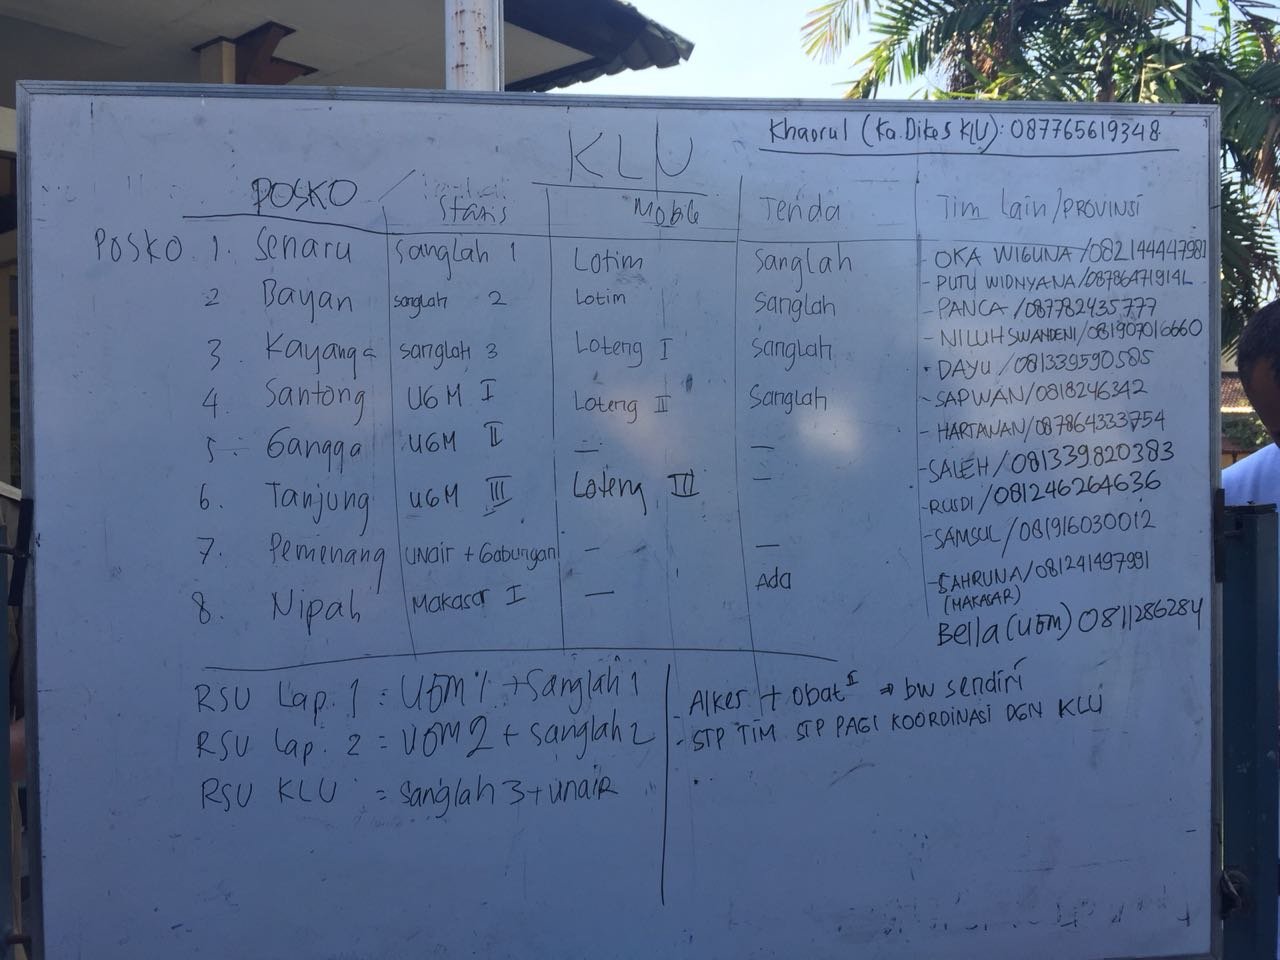 KLU
Khaerul (Ka. Dikes KLU): 087765619348
POSKO Statis Mobile Tenda Tim lain/PROVINSI
POSKO 1. Senaru Sanglah 1 Lotim Sanglah - OKA WIGUNA /082144447981
- PUTU WIDNYANA/
2 Bayan sanglah 2 Lotim Sanglah - PANCA /087782435777
- NILUH SWANDENI/081907016660
3. Kayanga sanglah 3 Loteng I Sanglah • DAYU /081339590585
4. Santong UGM I Loteng II Sanglah - SAPWAN/0818246342
- HARTAWAN/087864333754
5. Gangga UGM II — — - SALEH/081339820383
6. Tanjung UGM III Loteng III — - RUSDI/081246264636
- SAMSUL/081916030012
7. Pemenang UNair + Gabungan — —
8. Nipah Makasar I — Ada - SAHRUNA/081241497991
(MAKASAR)
Bella (UGM) 0811286284
RSU Lap. 1 = UGM 1 + Sanglah 1
RSU Lap. 2 = UGM 2 + Sanglah 2
RSU KLU = Sanglah 3 + Unair
- Alkes + Obat² ⇒ bw sendiri
- STP TIM STP PAGI KOORDINASI DGN KLU
•